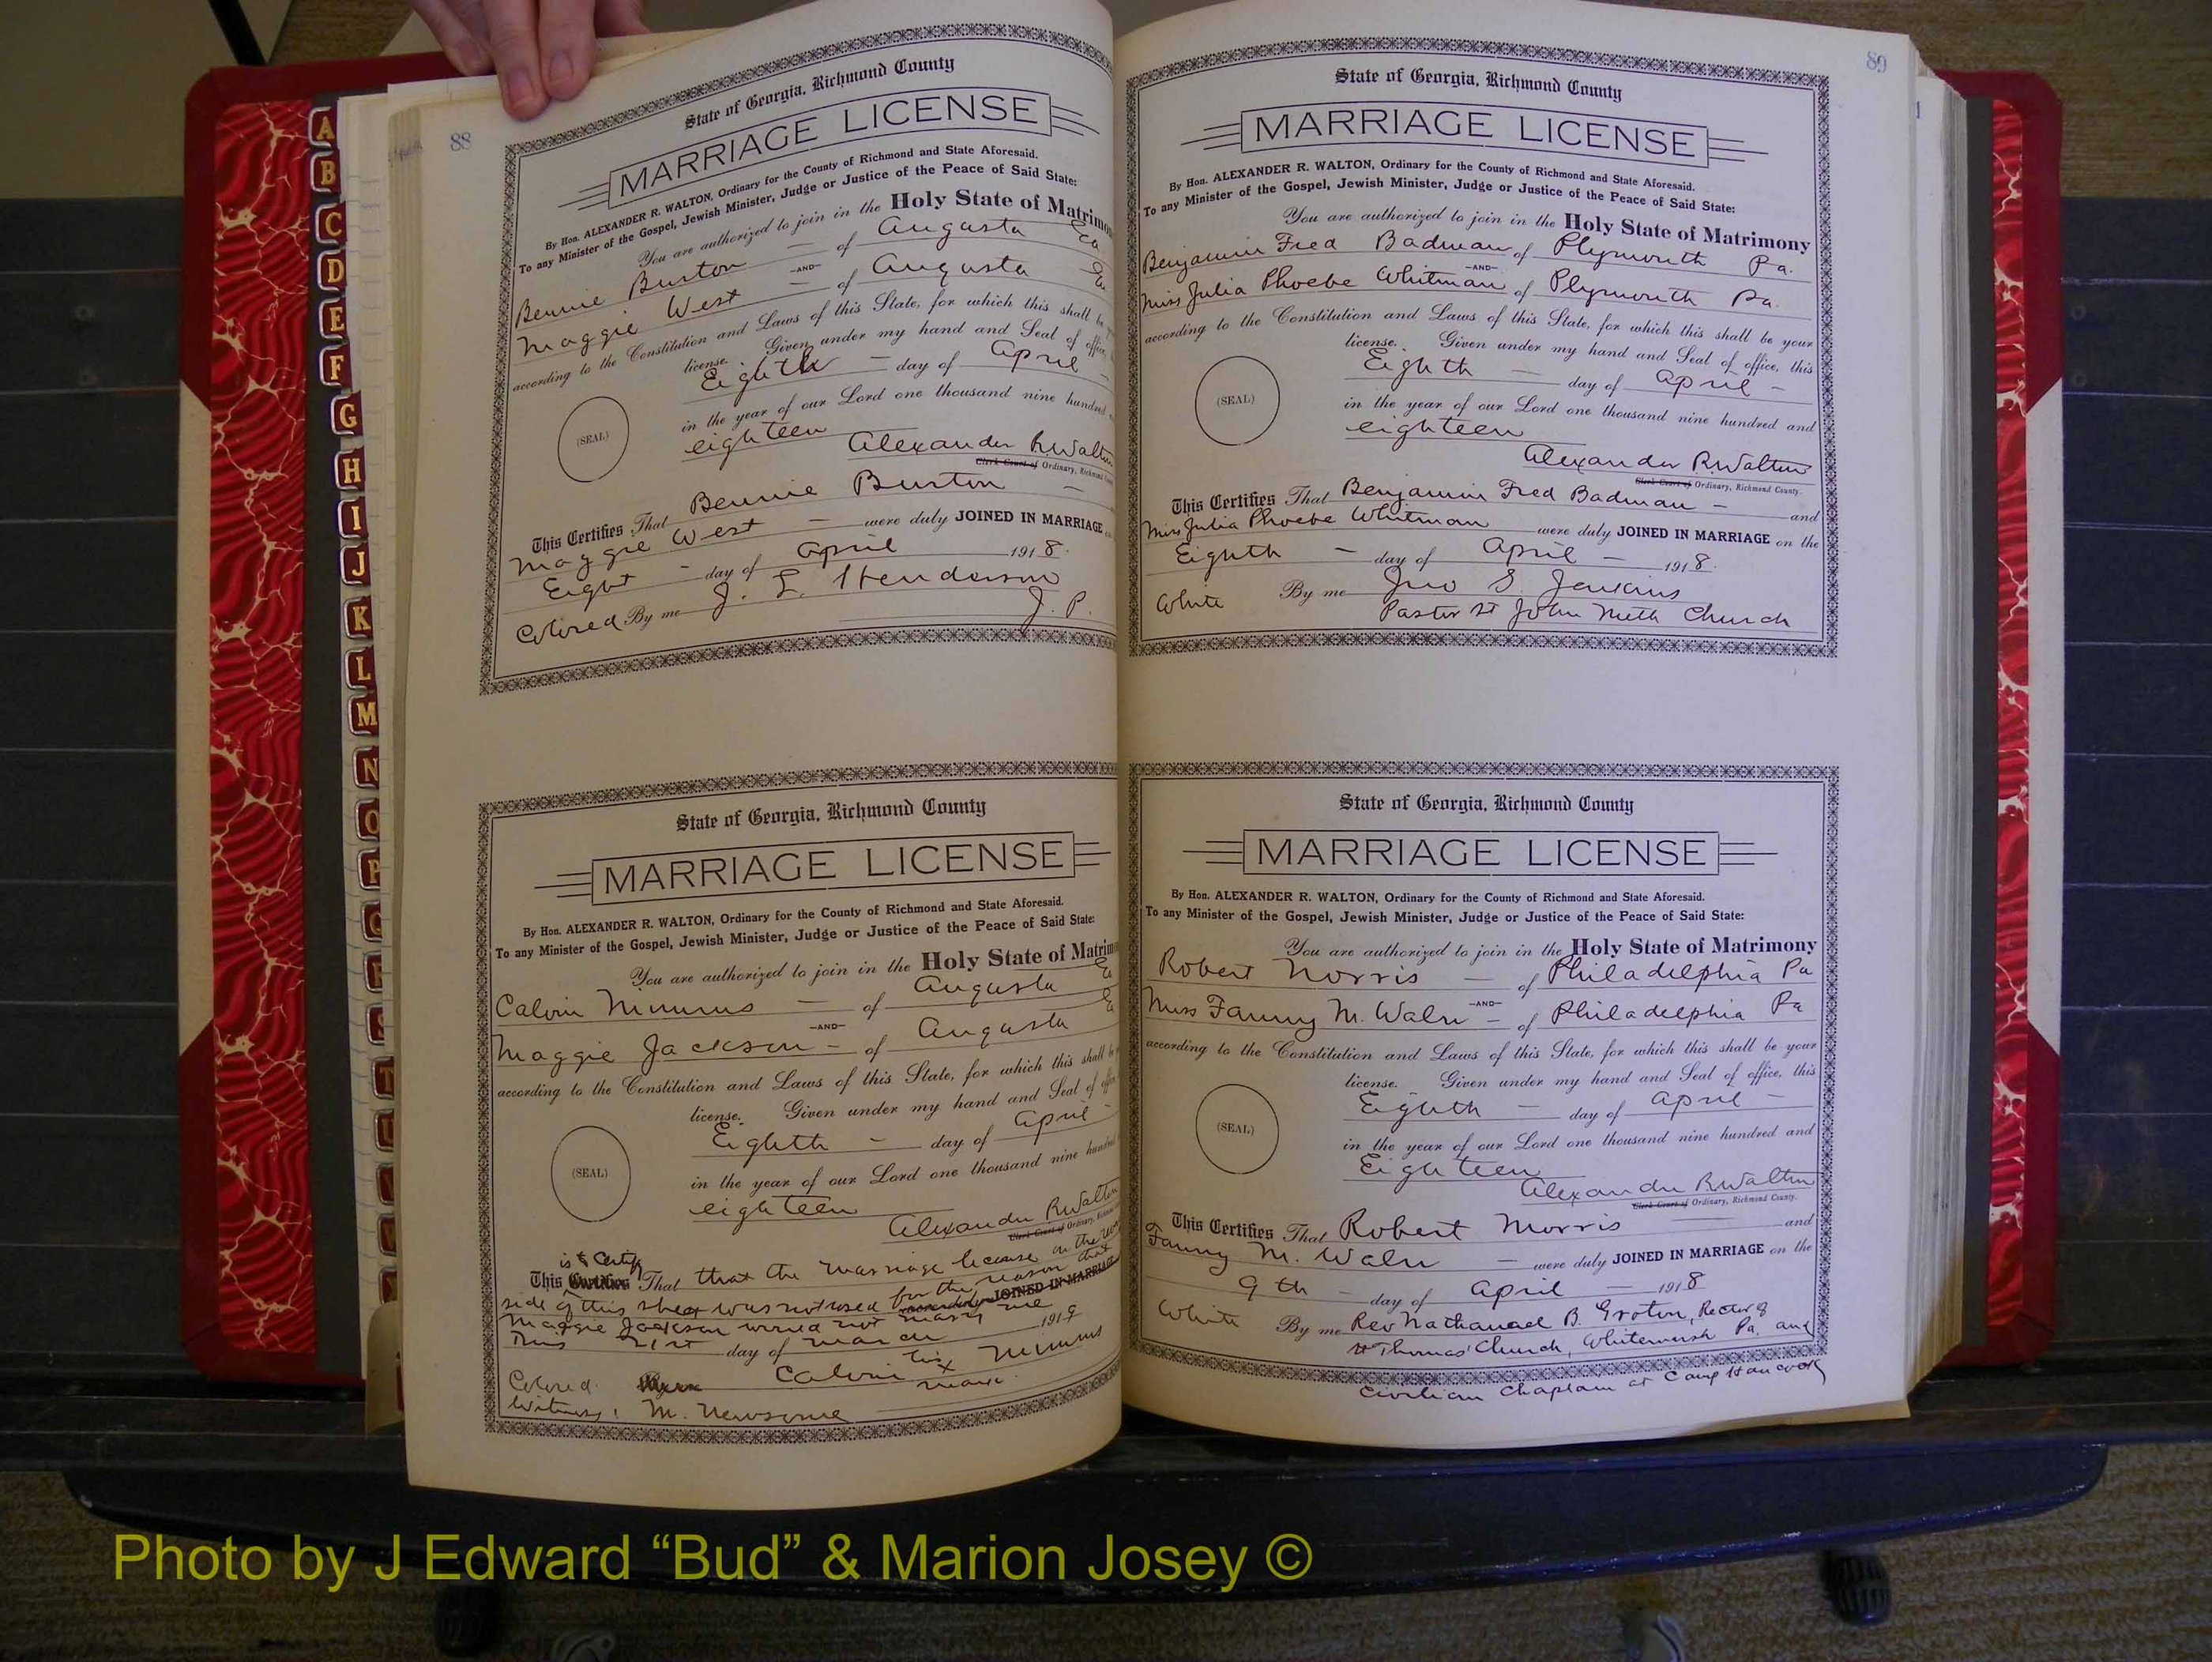 A
B
C
D
E
F
G
H
I
J
K
L
M
N
O
P
88
State of Georgia, Richmond County
MARRIAGE LICENSE
By Hon. ALEXANDER R. WALTON, Ordinary for the County of Richmond and State Aforesaid.
To any Minister of the Gospel, Jewish Minister, Judge or Justice of the Peace of Said State:
You are authorized to join in the Holy State of Matrimo
Bennie Burton — of Augusta Ga
—AND—
Maggie West — of Augusta
according to the Constitution and Laws of this State, for which this shall be
license. Given under my hand and Seal of office,
Eighth — day of April —
in the year of our Lord one thousand nine hundred
eighteen
(SEAL)
Alexander R. Walton
Clerk Court of Ordinary, Richmond
This Certifies That Bennie Burton —
Maggie West — were duly JOINED IN MARRIAGE
Eight — day of April 1918.
Colored By me J. L. Henderson
J. P.
State of Georgia, Richmond County
MARRIAGE LICENSE
By Hon. ALEXANDER R. WALTON, Ordinary for the County of Richmond and State Aforesaid.
To any Minister of the Gospel, Jewish Minister, Judge or Justice of the Peace of Said State:
You are authorized to join in the Holy State of Matrim
Calvin Nimmus — of Augusta
—AND—
Maggie Jackson — of Augusta
according to the Constitution and Laws of this State, for which this shall be
license. Given under my hand and Seal of
Eighth — day of April —
in the year of our Lord one thousand nine hundred
eighteen
(SEAL)
Alexander R. Walton
Clerk Court of Ordinary,
is to Certify
This Certifies That that the marriage license on the
side of this sheet was not used for the reason that
were duly JOINED IN MARRIAGE
Maggie Jackson would not marry me
This 21st day of March 1919
Colored. Calvin his x mark Nimmus
Witness: M. Newsome
89
State of Georgia, Richmond County
MARRIAGE LICENSE
By Hon. ALEXANDER R. WALTON, Ordinary for the County of Richmond and State Aforesaid.
To any Minister of the Gospel, Jewish Minister, Judge or Justice of the Peace of Said State:
You are authorized to join in the Holy State of Matrimony
Benjamin Fred Badman of Plymouth Pa.
—AND—
Miss Julia Phoebe Whitman of Plymouth Pa.
according to the Constitution and Laws of this State, for which this shall be your
license. Given under my hand and Seal of office, this
Eighth — day of April —
in the year of our Lord one thousand nine hundred and
eighteen
(SEAL)
Alexander R. Walton
Clerk Court of Ordinary, Richmond County.
This Certifies That Benjamin Fred Badman — and
Miss Julia Phoebe Whitman were duly JOINED IN MARRIAGE on the
Eighth — day of April — 1918.
White By me Jno S. Jenkins
Pastor St John Meth Church
State of Georgia, Richmond County
MARRIAGE LICENSE
By Hon. ALEXANDER R. WALTON, Ordinary for the County of Richmond and State Aforesaid.
To any Minister of the Gospel, Jewish Minister, Judge or Justice of the Peace of Said State:
You are authorized to join in the Holy State of Matrimony
Robert Norris — of Philadelphia Pa
—AND—
Miss Fanny M. Waln — of Philadelphia Pa
according to the Constitution and Laws of this State, for which this shall be your
license. Given under my hand and Seal of office, this
Eighth — day of April —
in the year of our Lord one thousand nine hundred and
Eighteen
(SEAL)
Alexander R. Walton
Clerk Court of Ordinary, Richmond County.
This Certifies That Robert Morris and
Fanny M. Waln — were duly JOINED IN MARRIAGE on the
9th — day of April — 1918
White By me Rev Nathanael B. Groton, Rector of
St Thomas' Church, Whitemarsh Pa. and
Civilian Chaplain at Camp Hancock
Photo by J Edward “Bud” & Marion Josey ©